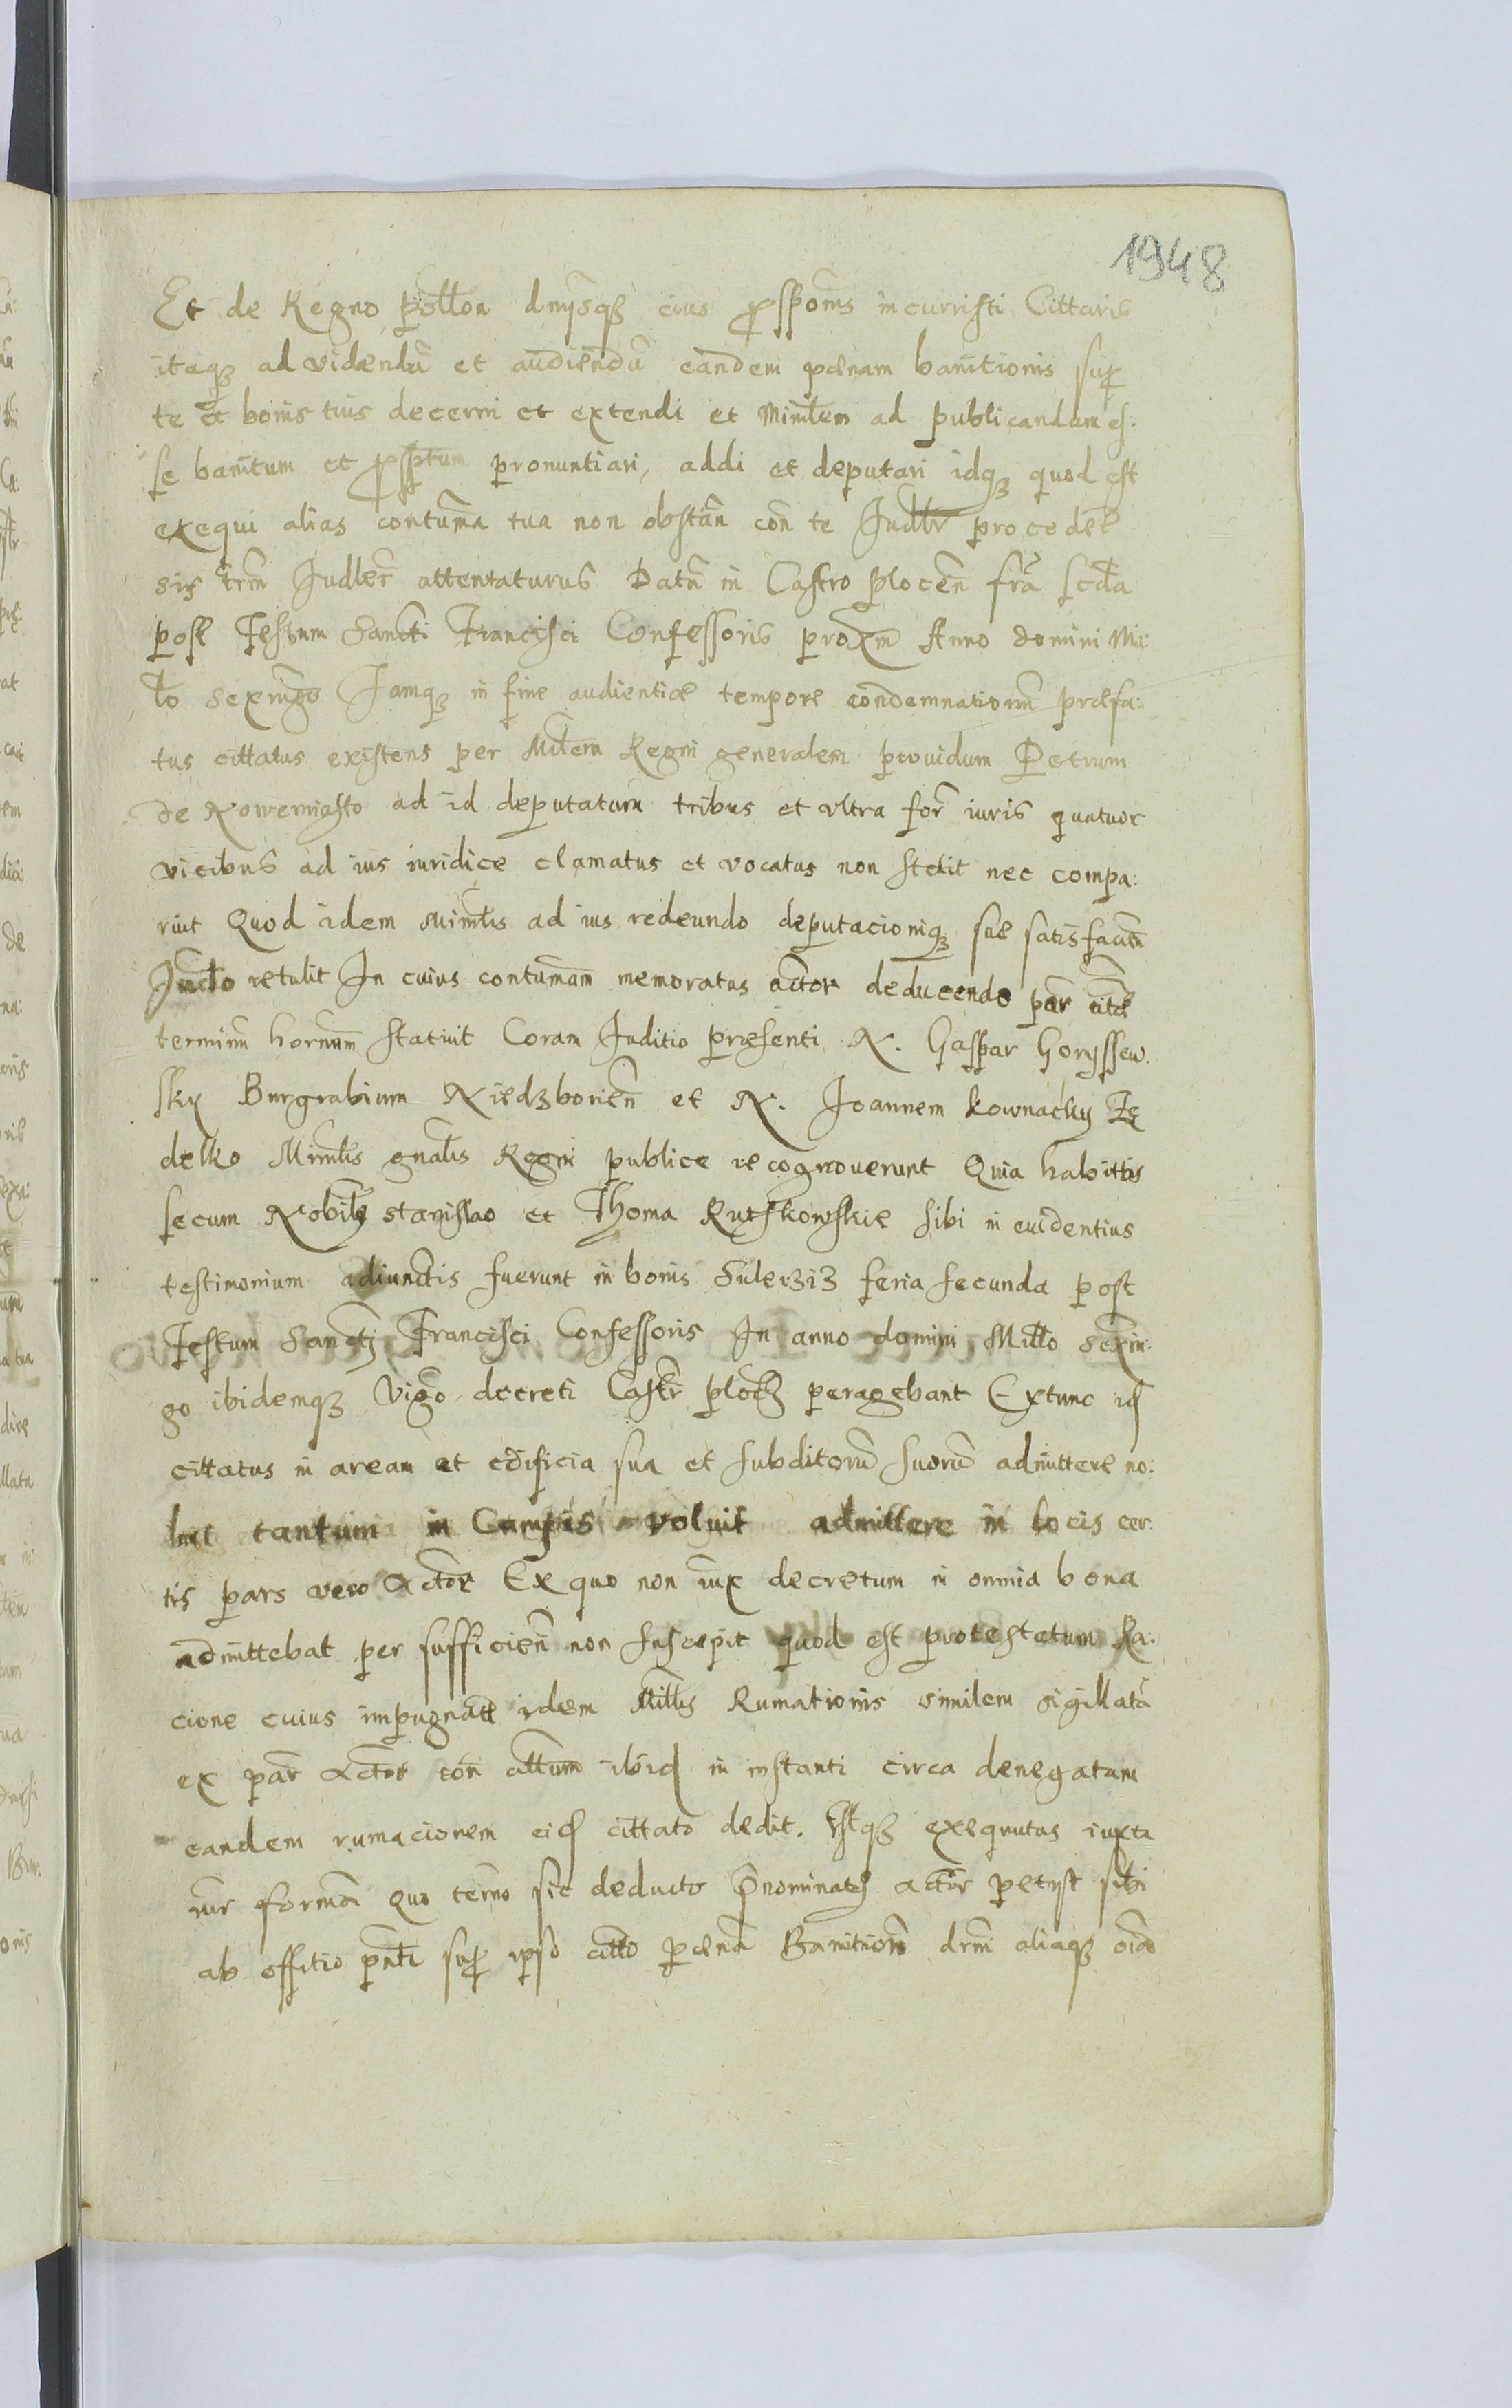 1948
Et de Regno pollon dnysqȝ eius prospōnis incurristi Cittaris
itaqȝ ad videndū et audiendū eandem pænam banitionis sup
te et bonis tuis decerni et extendi et Minłem ad publicandum es:
se banitum et prosptum pronuntiari, addi et deputari idqȝ quod est
exequi alias contuma tua non obstañ coñ te Judlr procedet
sis trm Judler attentaturus Datñ in Castro plocen̄ fra scda
post Festum Sancti Francisci Confessoris proxm Anno domini Mil:
lo sexingo Jamqȝ in fine audientiæ tempore condemnationm præfa:
tus cittatus existens per Milem Regni generalem prouidum Petrum
de Nowemiasto ad id deputatum tribus et vltra for iuris quatuor
vicibus ad ius iuridice clamatus et vocatus non stetit nec compa:
ruit Quod idem Minlis ad ius redeundo deputacioniqȝ suæ satisfacien
Judło retulit In cuius contumam memoratus actor deducendo par citē
terminm hornum statuit Coram Juditio præsenti N. Gaspar Goryssew:
sky Burgrabium Niedzborien̄ et N. Joannem Kownacky Fę
delko Minłis gnałis Regni publice recognouerunt Quia habittis
secum Nobilȝ Stanislao et Thoma Rutkowskie sibi in euidentius
testimonium adiunctis fuerunt in bonis Sulerziȝ feria secunda post
Festum Sanctj Francisci Confessoris In anno domini Millo sexm:
go ibidemqȝ vigō decreti Castr plocȝ peragebant Extunc id
cittatus in aream et ædificia sua et subditorū suorū admittere no:
luit tantum in Campis voluit admittere in locis cer:
tis pars vero Actor Ex quo non iux decretum in omnia bona
admittebat per sufficien̄ non suscepit quod est protestatum Ra:
cione cuius impugnatē idem Millis Rumationis similem sigillatā
ex par Actor coñ attum ibid in instanti circa denegatam
eandem rumacionem eid cittato dedit. Estqȝ exequutas iuxta
iur formā Quo termo sic deducto prænominatȝ actor petyst sibi
ab offitio pnti sup ipso citto pænā Banitionē drni aliaqȝ oiā